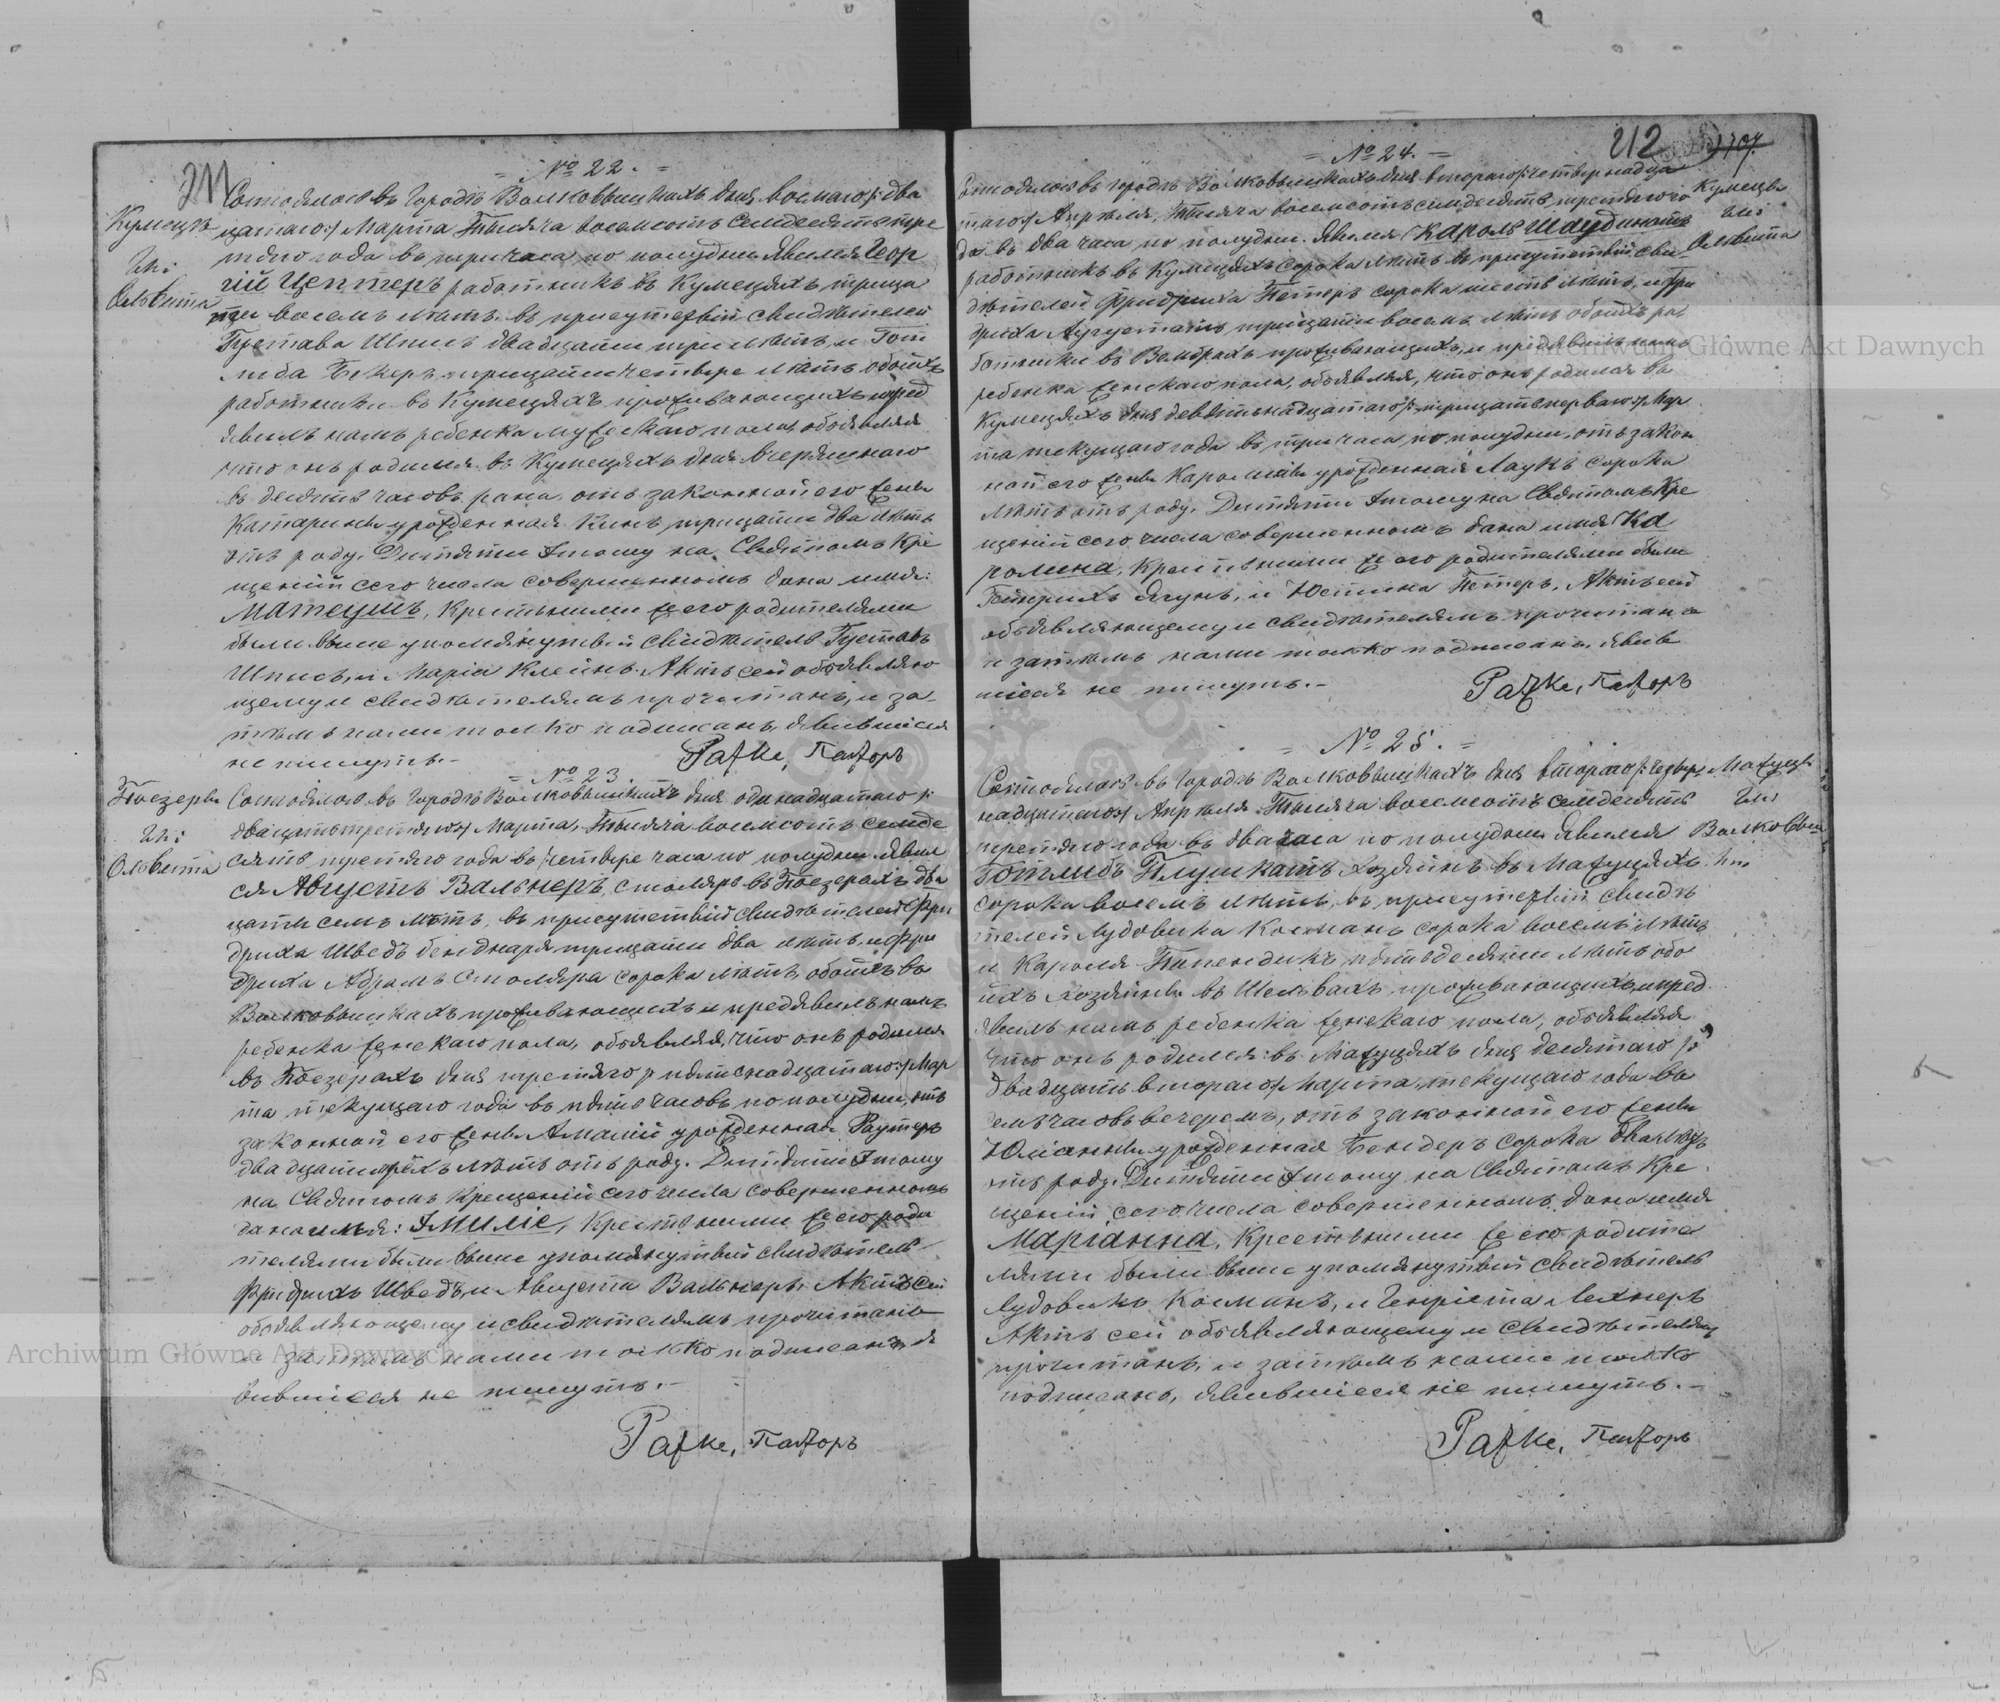 211
№ 22.
Кумецъ
Гми:
Ольвита
Состоялось въ Городѣ Волковышкахъ дня восмаго /: два
цатаго :/ Марта Тысяча восемсотъ Семдесятъ тре
тяго года въ три часа по полудни Явился Геор
гій Центеръ работникъ въ Кумецяхъ, трица
ти восемъ лѣтъ въ присутствіи Свидѣтелей
Густава Шписъ двадцати три лѣтъ, и Гот
либа Бекеръ, трицати четыре лѣтъ обоихъ
работники въ Кумецяхъ проживающихъ и пред
явилъ намъ ребенка мужескаго пола, объявляя
что онъ родился въ Кумецяхъ дня вчеряшнаго
въ десять часовъ рана, отъ законной его жены
Катарины урожденная Кинъ трицати два лѣтъ
отъ роду. Дитяти этому на Святомъ Кре
щеніи сего числа совершенномъ дана имя:
Матеушъ, Крестными же его родителями
были выше упомянутый Свидѣтель Густавъ
Шписъ, и Марія Клейнъ. Актъ сей объявляю
щему и свидѣтелямъ прочитанъ, и за-
тѣмъ нами толко подписанъ, явившіеся
не пишутъ.-
Ратке, Пасторъ
№ 23.
Поезеры
Гми:
Ольвита
Состоялось въ Городѣ Волковышкахъ дня одинадцатаго /:
двацатьтретяго :/ Марта, Тысяча восемсотъ семде
сятъ третяго года въ четыре часа по полудни явил
ся Августъ Вальнеръ, столяръ въ Поезерахъ два
цати семъ лѣтъ, въ присутствіи Свидѣтелей Фри
дриха Шведъ беднаря трицати два лѣтъ, и Фри
дриха Абрамъ Столяра сорока лѣтъ, обоихъ въ
Волковышкахъ проживающихъ и предявилъ намъ
ребенка женскаго пола, объявляя, что онъ родился
въ Поезерахъ дня третяго /: пятнонадцатаго :/ Мар
та текущаго года въ пять часовъ по полудни, отъ
законной его жены Амаліи урожденная Раутеръ
двадцати трёхъ лѣтъ отъ роду. Дитяти этому
на Святомъ Крещеніи сего числа совершенномъ
дана имя: Эмиліе, Крестными же его роди
телями были выше упомянутый Свидѣтель
Фридрихъ Шведъ, и Августа Вальнеръ. Актъ сей
объявляющему и свидѣтелямъ прочитанъ
и затѣмъ нами только подписанъ, я
вившіеся не пишутъ.-
Ратке, Пасторъ
212
№ 24.
Кумецы
Гми:
Ольвита
Состоялось въ городѣ Волковышкахъ дня втораго /: четвернадца
таго :/ Апрѣля, Тысяча восемсотъ семдесятъ третяго го
да въ два часа по полудни. Явился Кароль Шаудинатъ
работникъ въ Кумецяхъ сорока лѣтъ въ присутствіи Сви-
дѣтелей Фридриха Петеръ сорока шесть лѣтъ, и Фри
дриха Аугустатъ трицати восемъ лѣтъ обоихъ ра
ботники въ проживающихъ, и предявилъ намъ
ребенка женскаго пола, объявляя, что онъ родился въ
Кумецяхъ дня девятьнадцатаго /: трицатьперваго :/ Мар
та текущаго года въ три часа по полудни, отъ закон
ной его жены Каролины урожденная Лаукъ сорока
лѣтъ отъ роду. Дитяти этому на Святомъ Кре
щеніи сего числа совершенномъ дана имя Ка
ролина, Крестными же его родителями были
Гейнрихъ Ягунъ, и Юстина Петеръ. Актъ сей
объявляющему и свидѣтелямъ прочитанъ
и затѣмъ нами толко подписанъ, явив
шіеся не пишутъ.-
Ратке, Пасторъ
№ 25.
Мажуцы
Гми:
Волковыш
Состоялось въ городѣ Волковышкахъ дня втораго /: четвер
надцатаго :/ Апрѣля Тысяча восемсотъ семдесятъ
третяго года въ два часа по полудни Явился
Готлибъ Плушкатъ Хозяинъ въ Мажуцяхъ
сорока восемъ лѣтъ, въ присутствіи Свидѣ
телей Лудовика Косманъ сорока восемъ лѣтъ
и Кароля Папендикъ пятьдесяти лѣтъ обо
ихъ Хозяины въ Шельвахъ проживающихъ, и пред
явилъ намъ ребенка женскаго пола, объявляя
что онъ родился въ Мажуцяхъ дня десятаго /:
двадцатьвтораго :/ Марта, текущаго года въ
семъ часовъ вечеремъ, отъ законной его жены
Юліанны урожденная Бендеръ сорока два лѣтъ
отъ роду. Дитяти этому на Святомъ Кре
щеніи, сего числа совершенномъ, дана имя
Маріанна, Крестными же его родите
лями были выше упомянутый Свидѣтель
Лудовикъ Косманъ, и Генріета Лехнеръ
Актъ сей объявляющему и Свидѣтелямъ
прочитанъ, и затѣмъ нами толко
подписанъ, явившіеся не пишутъ.-
Ратке, Пасторъ
Archiwum Główne Akt Dawnych
Archiwum Główne Akt Dawnych